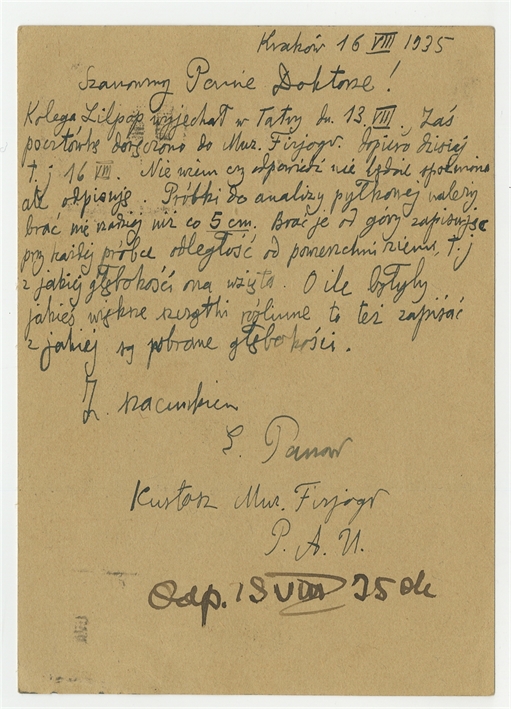 Kraków 16 VIII 1935
Szanowny Panie Doktorze!
Kolega Lilpop wyjechał w Tatry dn. 13 VIII. Zaś
pocztówkę doręczono do Muz. Fizjogr. dopiero dzisiaj
t. j 16 VIII. Nie wiem czy odpowiedź nie będzie spóźniona
ale odpisuję. Próbki do analizy pyłkowej należy
brać nie rzadziej niż co 5 cm. Brać je od góry zapisując
przy każdej próbce odległość od powierzchni ziemi, t. j
z jakiej głębokości ona wzięta. O ile byłyby
jakieś większe szczątki roślinne to też zapisać
z jakiej są pobrane głębokości.
Z szacunkiem
E. Panow
Kustosz Muz. Fizjogr
P. A. U.
Odp. 19 VIII 35 dk